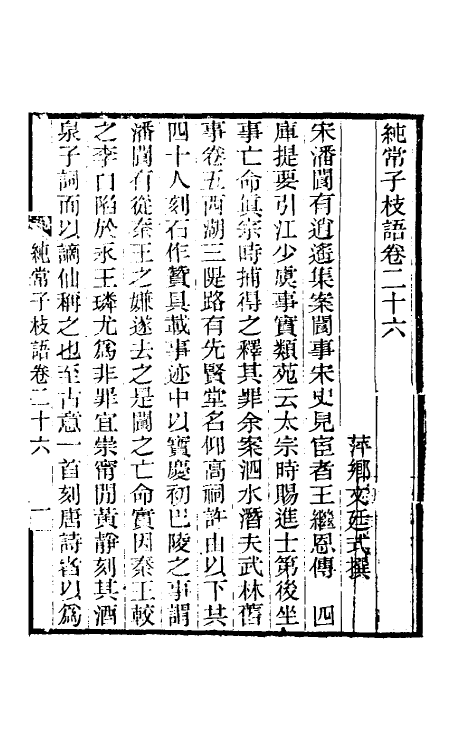 純常子枝語卷二十六
萍鄉文廷式撰
宋潘閬有逍遙集案閬事宋史見宦者王繼恩傳　四
庫提要引江少虞事寶類苑云太宗時賜進士第後坐
事亡命真宗時捕得之釋其罪余案泗水潛夫武林舊
事卷五西湖三隄路有先賢堂名仰高祠許由以下共
四十人刻石作贊具載事迹中以寶慶初巴陵之事謂
潘閬有從秦王之嫌遂去之是閬之亡命實因秦王較
之李白陷於永王璘尤爲非罪宜崇甯閒黃靜刻其酒
泉子詞而以謫仙稱之也至古意一首刻唐詩者以爲
純常子枝語卷二十六
一